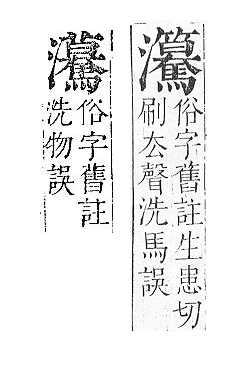 俗字舊註生患切
刷厺聲洗馬誤
俗字舊註
洗物誤